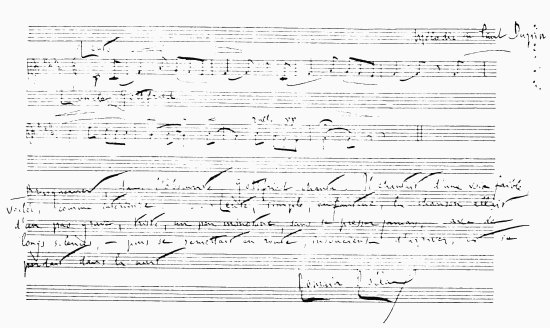 Mélodie de Paul Dupin
Lent
p
L'Oncle Gottfried
rall. pp
Brusquement, dans l'obscurité, Gottfried chanta. Il chantait d'une voix faible,
voilée, comme intérieure ..... Lente, simple, enfantine, la chanson allait
d'un pas grave, triste, un peu monotone, sans se presser jamais, – avec de
longs silences, – puis se remettait en route, insouciante d'arriver, et se
perdait dans la nuit.
Romain Rolland